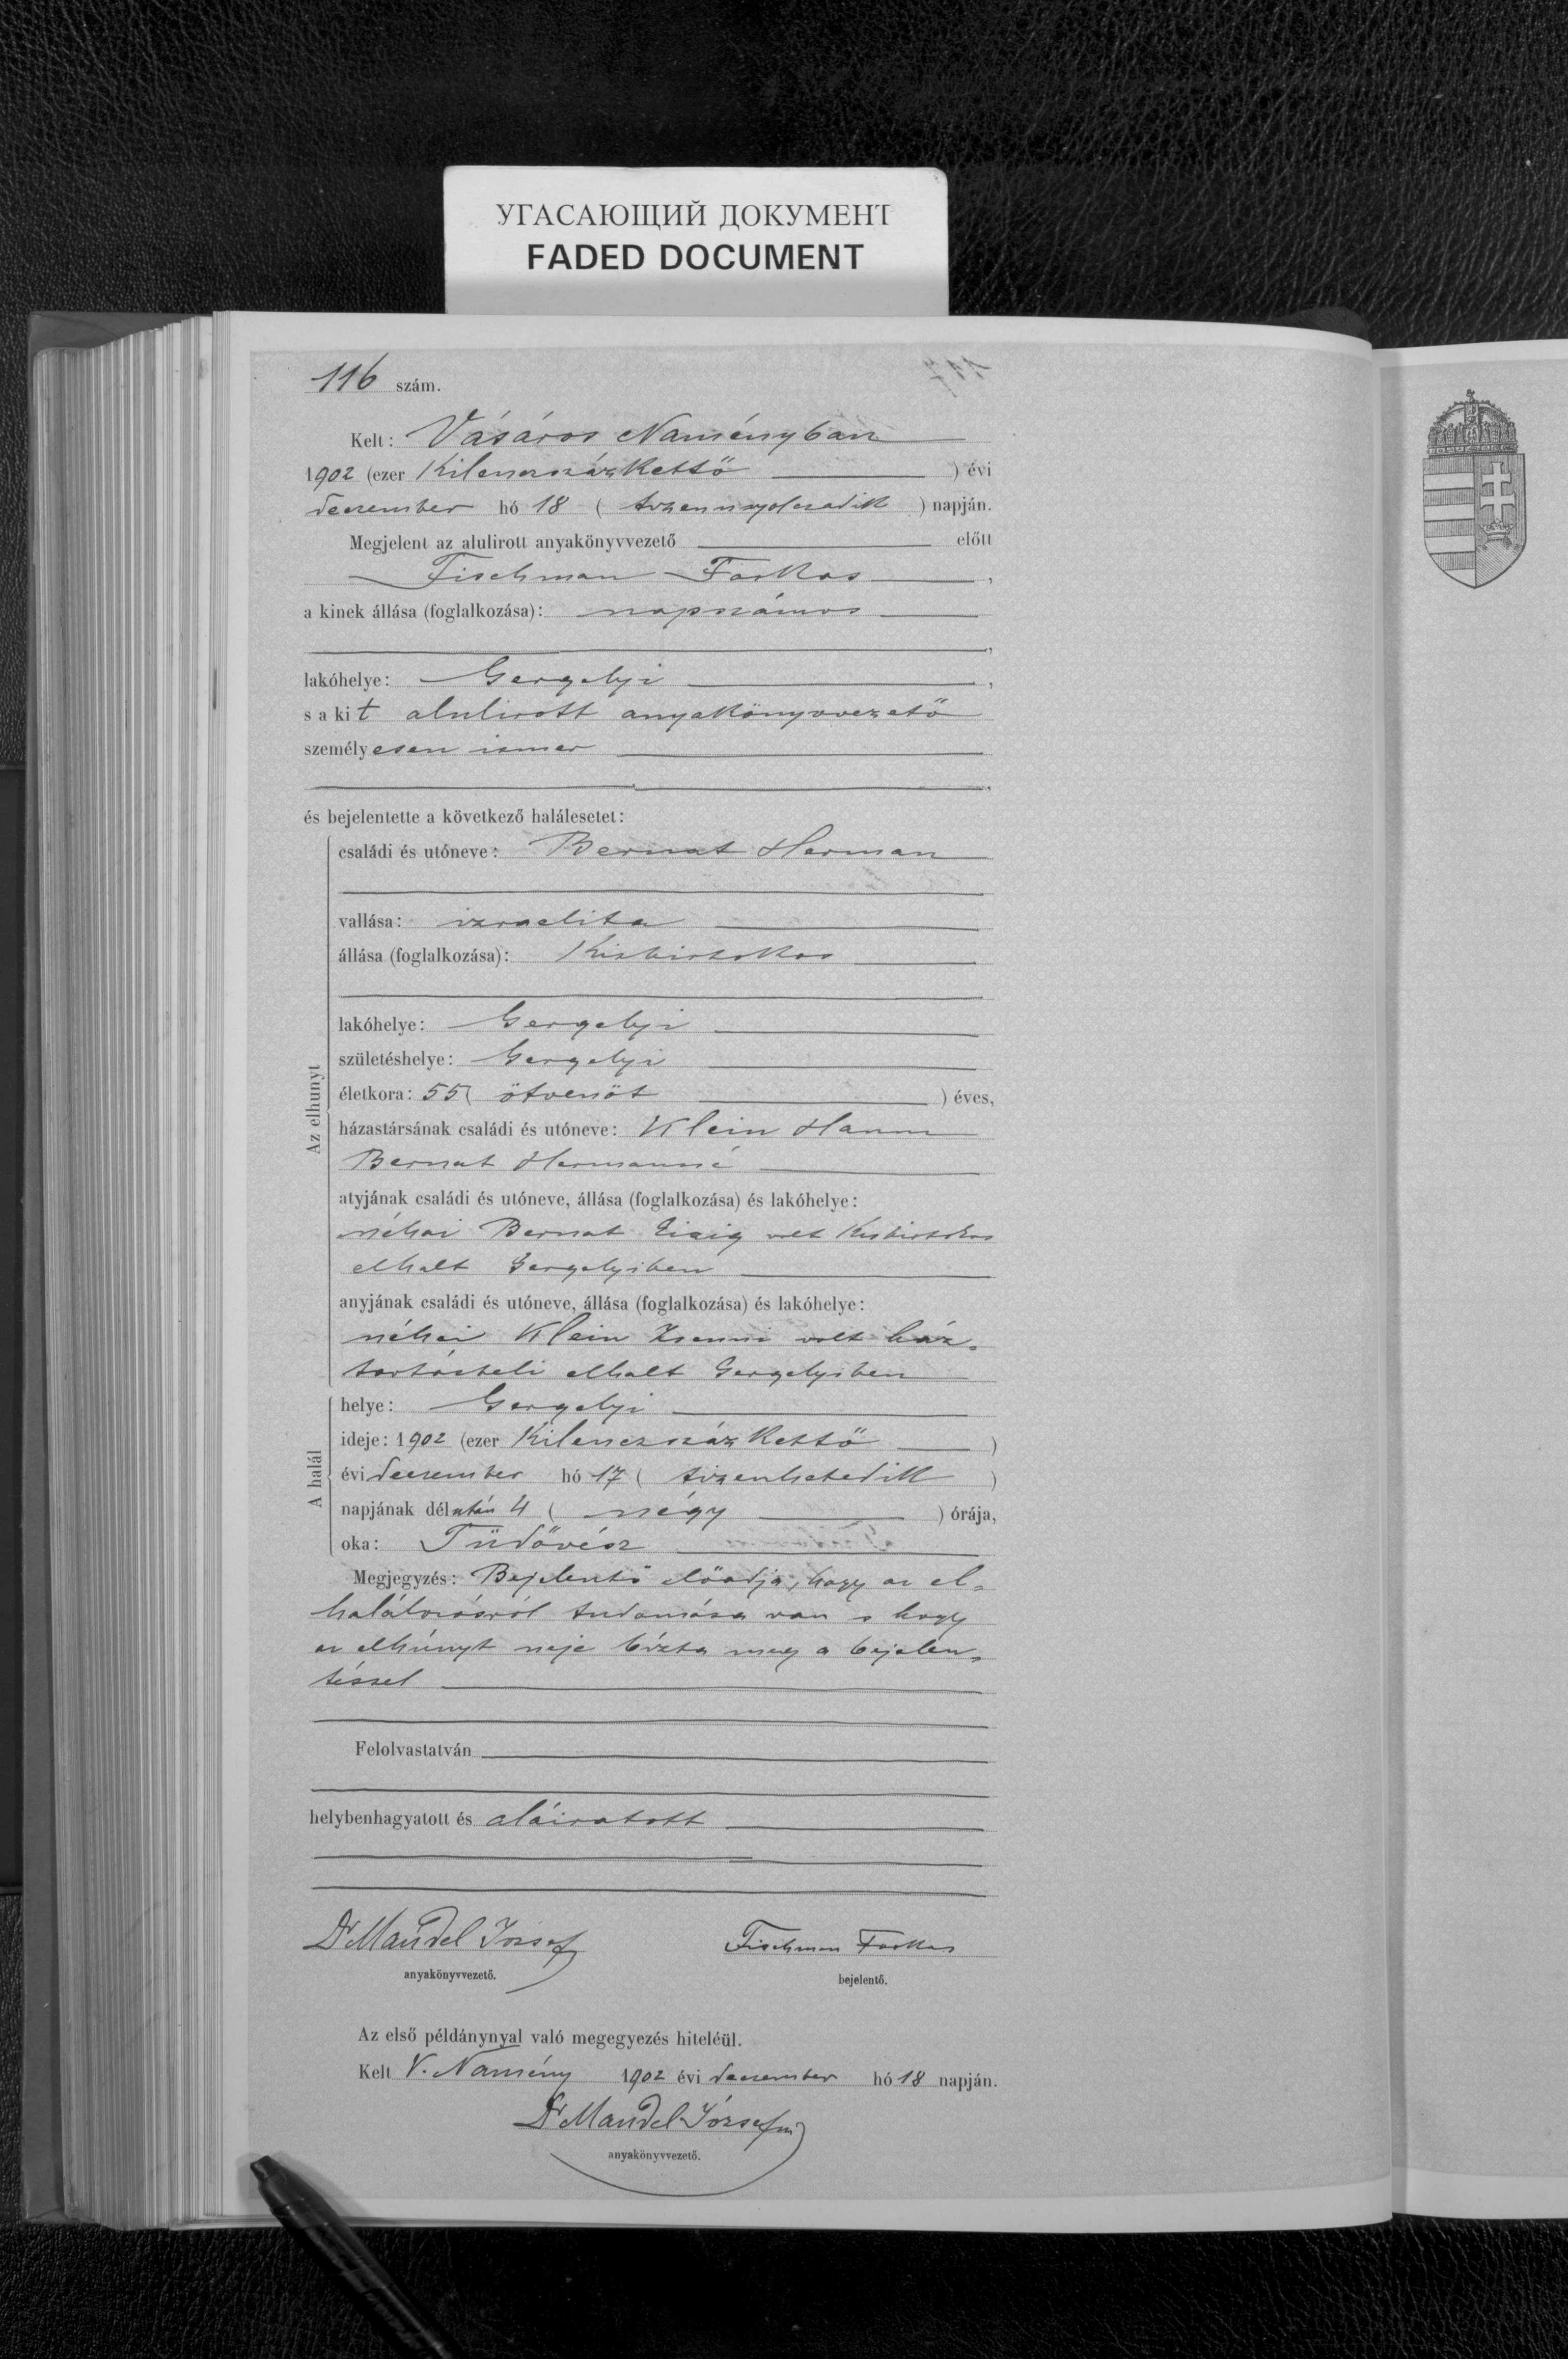 УГАСАЮЩИЙ ДОКУМЕНТ
FADED DOCUMENT
116 szám.
117
Kelt: Vásáros Naményban
1902 (ezer Kilenczszázkettő) évi
deczember hó 18 (tizennyolczadik) napján.
Megjelent az alulirott anyakönyvvezető előtt
Fischman Farkas,
a kinek állása (foglalkozása): napszámos
,
lakóhelye: Gergelyi,
s a kit alulirott anyakönyvvezető
személyesen ismer
.
és bejelentette a következő halálesetet:
Az elhunyt
családi és utóneve: Bernat Herman
vallása: izraelita
állása (foglalkozása): Kisbirtokos
lakóhelye: Gergelyi
születéshelye: Gergelyi
életkora: 55 (ötvenöt) éves,
házastársának családi és utóneve: Klein Hanni
Bernat Hermanné
atyjának családi és utóneve, állása (foglalkozása) és lakóhelye:
néhai Bernat volt Kisbirtokos
elhalt Gergelyiben
anyjának családi és utóneve, állása (foglalkozása) és lakóhelye:
néhai Klein Zsenni volt ház-
tartásbeli elhalt Gergelyiben
A halál
helye: Gergelyi
ideje: 1902 (ezer Kilenczszázkettő)
évi deczember hó 17 (tizenhetedik)
napjának délután 4 (négy) órája,
oka: Tüdővész
Megjegyzés: Bejelentő előadja, hogy az el-
halálozásról tudomása van s hogy
az elhúnyt neje bízta meg a bejelen-
téssel
Felolvastatván
helybenhagyatott és aláiratott
Dr Mandel József
Fischman Farkas
anyakönyvvezető.
bejelentő.
Az első példánynyal való megegyezés hiteléül.
Kelt V. Namény 1902 évi deczember hó 18 napján.
Dr Mandel József
anyakönyvvezető.